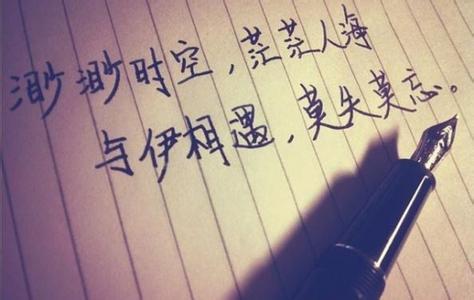 渺渺时空，茫茫人海
与伊相遇，莫失莫忘。